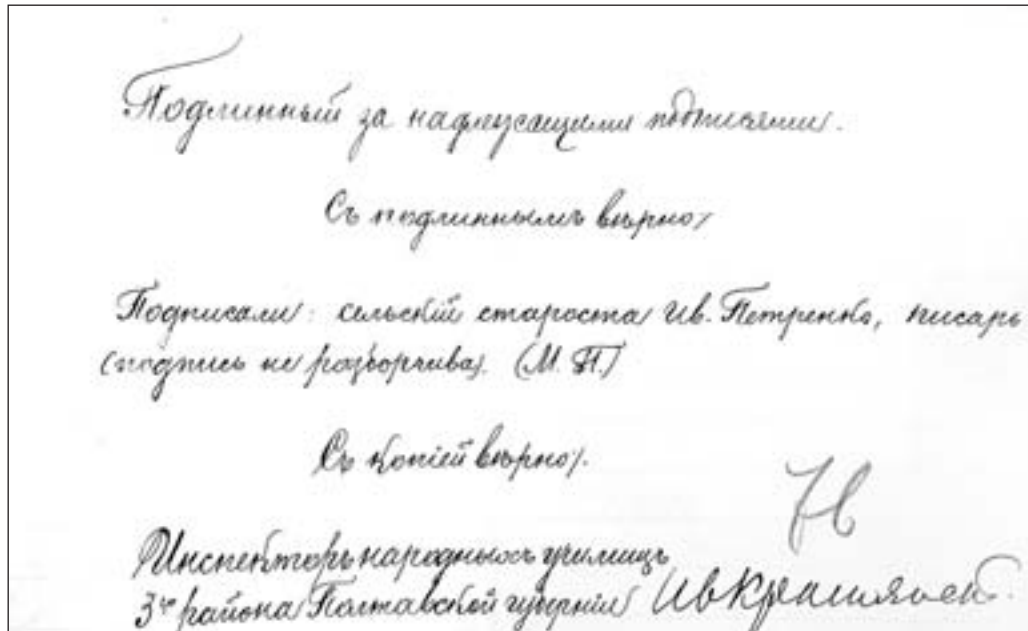 Подлинный за надлежащими подписями.
Съ подлиннымъ вѣрно:
Подписали: сельскій староста Ив. Петренко, писарь
(подпись не разборчива). (М. П.)
Съ копіей вѣрно:
Инспекторъ народныхъ училищъ
3го района Полтавской губерніи Ив